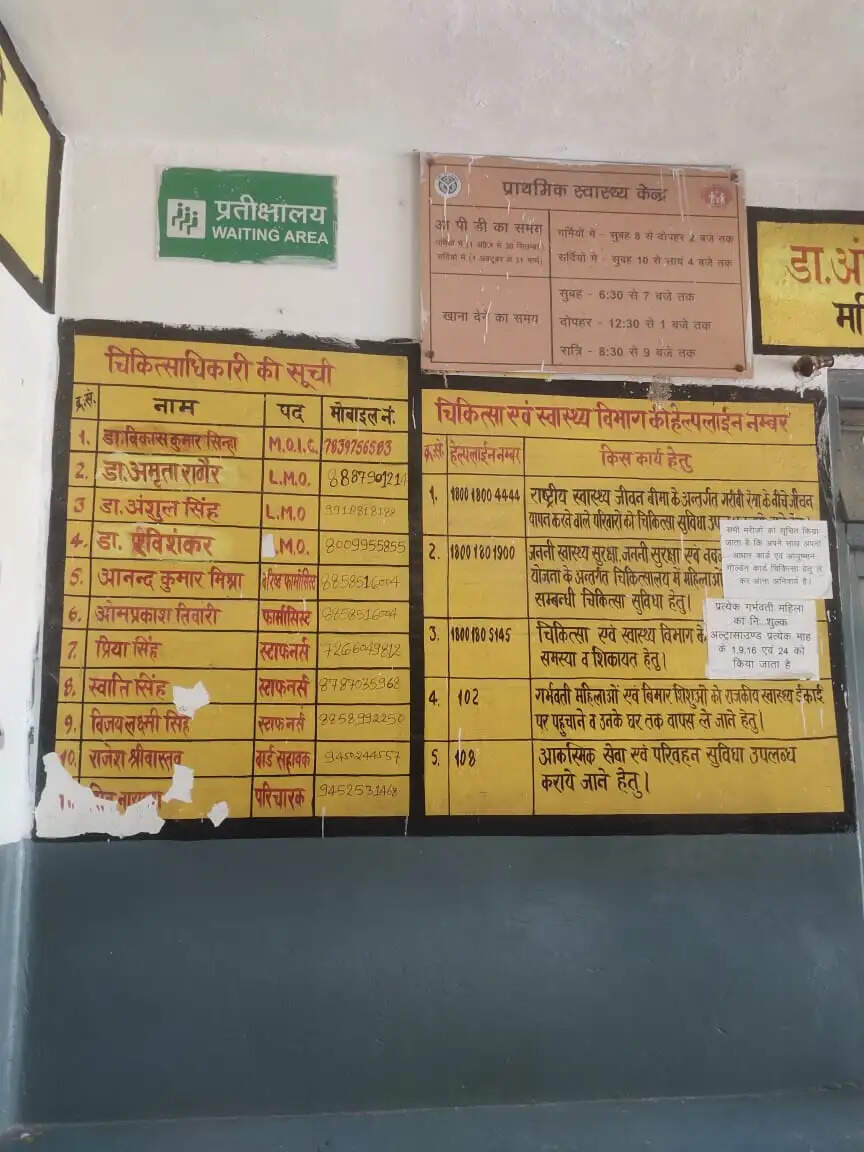 प्रतीक्षालय
WAITING AREA
प्राथमिक स्वास्थ्य केन्द्र
आ पी डी का समय
गर्मियों में - सुबह 8 से दोपहर 2 बजे तक
सर्दियों में - सुबह 10 से सायं 4 बजे तक
खाना देने का समय
सुबह - 6:30 से 7 बजे तक
दोपहर - 12:30 से 1 बजे तक
रात्रि - 8:30 से 9 बजे तक
डा.अं
चिकित्साधिकारी की सूची
क्र.सं. नाम पद मोबाइल नं.
1. डा.विकास कुमार सिन्हा M.O.I.C. 7839756503
2. डा.अमृता राठौर L.M.O.
3 डा.अंशुल सिंह L.M.O
4. डा. रविशंकर .M.O. 8009955855
5. आनन्द कुमार मिश्रा फार्मासिस्ट
6. ओमप्रकाश तिवारी फार्मासिस्ट
7. प्रिया सिंह स्टाफनर्स 7266049812
8. स्वाति सिंह स्टाफनर्स 8787035968
9. विजय लक्ष्मी सिंह स्टाफनर्स 8858992250
10. राजेश श्रीवास्तव वार्ड सहायक 9450244557
परिचारक 9452531468
चिकित्सा एवं स्वास्थ्य विभाग की हेल्पलाईन नम्बर
क्र.सं. हेल्पलाईन नम्बर किस कार्य हेतु
1. 1800 1800 4444 राष्ट्रीय स्वास्थ्य जीवन बीमा के अन्तर्गत गरीबी रेखा के नीचे जीवन
यापन करने वाले परिवारों को चिकित्सा सुविधा
2. 1800 180 1900 जननी स्वास्थ्य सुरक्षा, जननी सुरक्षा एवं
योजना के अन्तर्गत चिकित्सालय में महिलाओं
सम्बन्धी चिकित्सा सुविधा हेतु।
3. 1800 180 5145 चिकित्सा एवं स्वास्थ्य विभाग के
समस्या व शिकायत हेतु।
4. 102 गर्भवती महिलाओं एवं बिमार शिशुओं को राजकीय स्वास्थ्य ईकाई
पर पहुचाने व उनके घर तक वापस ले जाने हेतु।
5. 108 आकस्मिक सेवा एवं परिवहन सुविधा उपलब्ध
कराये जाने हेतु।
सभी मरीजों को सूचित किया
जाता है कि अपने साथ अपना
आधार कार्ड एवं आयुष्मान
गोल्डन कार्ड चिकित्सा हेतु ले
कर आना अनिवार्य है।
प्रत्येक गर्भवती महिला
का नि:शुल्क
अल्ट्रासाउण्ड प्रत्येक माह
के 1,9,16 एवं 24 को
किया जाता है